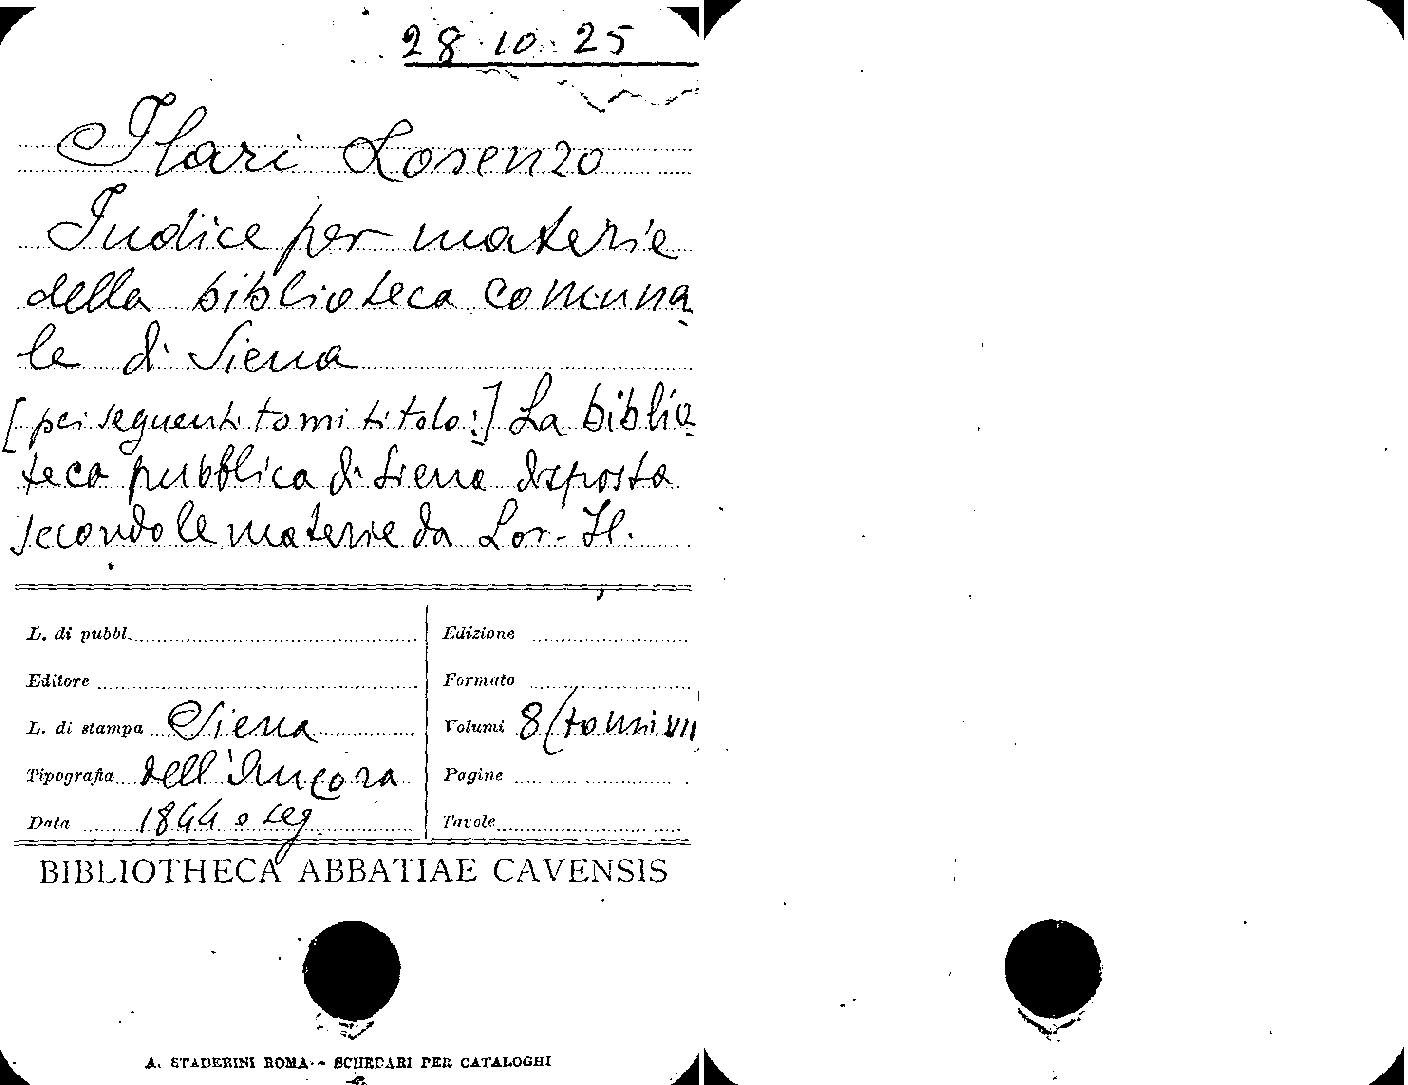 28.10.25
Ilari Lorenzo
Indice per materie
della biblioteca comuna
le di Siena
[pei seguenti tomi titolo:] La biblio
teca pubblica di Siena disposta
secondo le materie da Lor. Il.
L. di pubbl.
Editore
L. di stampa Siena
Tipografia dell'Ancora
Data 1844 e seg
Edizione
Formato
Volumi 8 (tomi VII
Pagine
Tavole
BIBLIOTHECA ABBATIAE CAVENSIS
A. STADERINI ROMA - SCHEDARI PER CATALOGHI